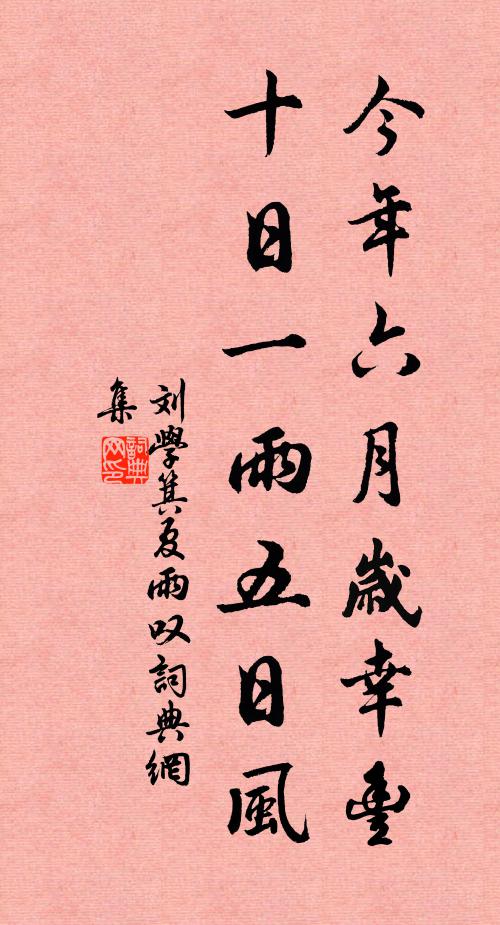 今年六月歲幸豐
十日一雨五日風
刘學箕夏雨叹詞典網
集
詞典
网印